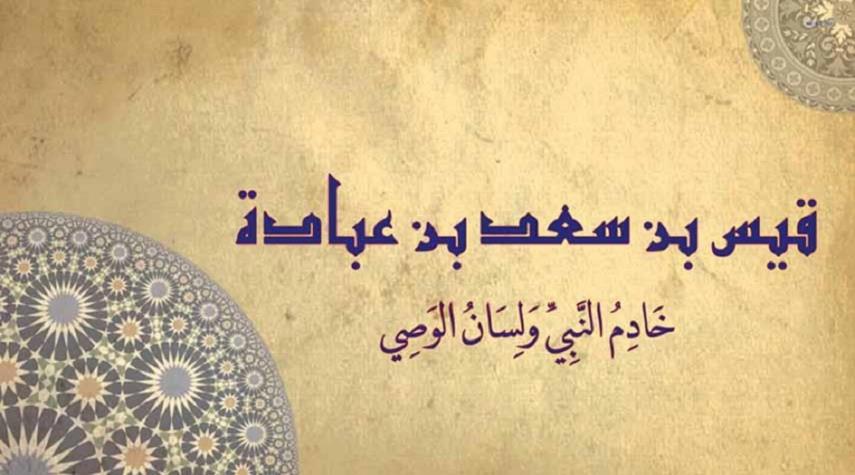 قيس بن سعد بن عبادة
خَادِمُ النَّبِيِّ وَلِسَانُ الوَصِي